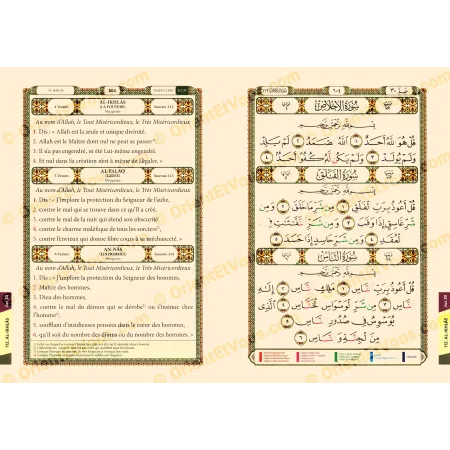 604
AL-IKHLÂS
(LA FOI PURE)
4 Versets
Sourate 112
Mecquoise
Au nom d'Allah, le Tout Miséricordieux, le Très Miséricordieux
1. Dis : « Allah est la seule et unique divinité.
2. Allah est le Maître dont nul ne peut se passer
3. Il n'a pas engendré, ni été Lui-même engendré.
4. Et nul dans Sa création n'est à même de l'égaler. »
AL-FALAQ
5 Versets
Sourate 113
Mecquoise
Au nom d'Allah, le Tout Miséricordieux, le Très Miséricordieux
1. Dis : « J'implore la protection du Seigneur de l'aube,
2. contre le mal qui se trouve dans ce qu'Il a créé,
3. contre le mal de la nuit qui étend son obscurité
4. contre le charme maléfique de tous les sorciers
5. contre l'envieux qui donne libre cours à sa méchanceté. »
AN-NÂS
(LES HOMMES)
6 Versets
Sourate 114
Mecquoise
Au nom d'Allah, le Tout Miséricordieux, le Très Miséricordieux
1. Dis : « J'implore la protection du Seigneur des hommes,
2. Maître des hommes,
3. Dieu des hommes,
4. contre le mal du démon qui se dérobe ou s'insinue chez
l'homme
5. soufflant d'insidieuses pensées dans le cœur des hommes,
6. qu'il soit du nombre des djinns ou du nombre des hommes. »
112. AL-IKHLÂS
٦٠٤
سُورَةُ الإِخْلَاصِ
قُلْ هُوَ اللَّهُ أَحَدٌ ١ اللَّهُ الصَّمَدُ ٢ لَمْ يَلِدْ
وَلَمْ يُولَدْ ٣ وَلَمْ يَكُن لَّهُ كُفُوًا أَحَدٌ ٤
سُورَةُ الْفَلَقِ
قُلْ أَعُوذُ بِرَبِّ الْفَلَقِ ١ مِن شَرِّ مَا خَلَقَ ٢ وَمِن
شَرِّ غَاسِقٍ إِذَا وَقَبَ ٣ وَمِن شَرِّ النَّفَّاثَاتِ فِي
الْعُقَدِ ٤ وَمِن شَرِّ حَاسِدٍ إِذَا حَسَدَ ٥
سُورَةُ النَّاسِ
قُلْ أَعُوذُ بِرَبِّ النَّاسِ ١ مَلِكِ النَّاسِ ٢ إِلَٰهِ
النَّاسِ ٣ مِن شَرِّ الْوَسْوَاسِ الْخَنَّاسِ ٤ الَّذِي
يُوَسْوِسُ فِي صُدُورِ النَّاسِ ٥
مِنَ الْجِنَّةِ وَالنَّاسِ ٦
112. AL-IKHLÂS